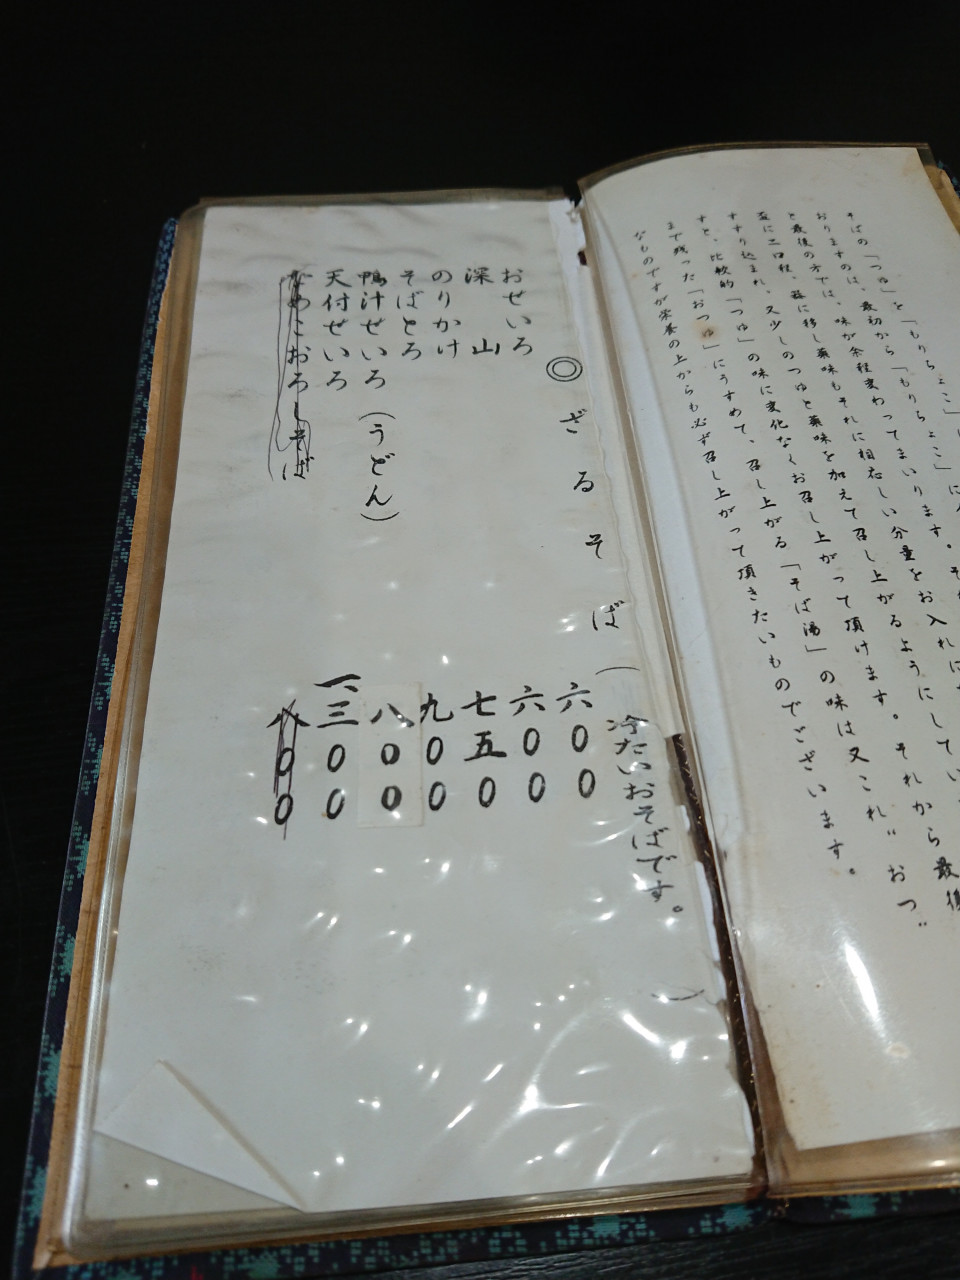 そばの「つゆ」を「もりちょこ」に
おりますのは、最初から「もりちょこ」に
と最後の方では、味が余程変わってまいります。そ
盃に二口程、器に移し薬味もそれに相応しい分量をお入れに
すすり込まれ、又少しのつゆと薬味を加えて召し上がるようにしてい
すと、比較的「つゆ」の味に変化なくお召し上がって頂けます。それから最後
まで残った「おつゆ」にうすめて、召し上がる「そば湯」の味は又これ"おつ"
なものですが栄養の上からも必ず召し上がって頂きたいものでございます。
◎ざるそば(冷たいおそばです。)
おせいろ 六〇〇
深山 六〇〇
のりかけ 七五〇
そばとろ 九〇〇
鴨汁せいろ(うどん) 八〇〇
天付せいろ 一、三〇〇
なめこおろしそば 八〇〇